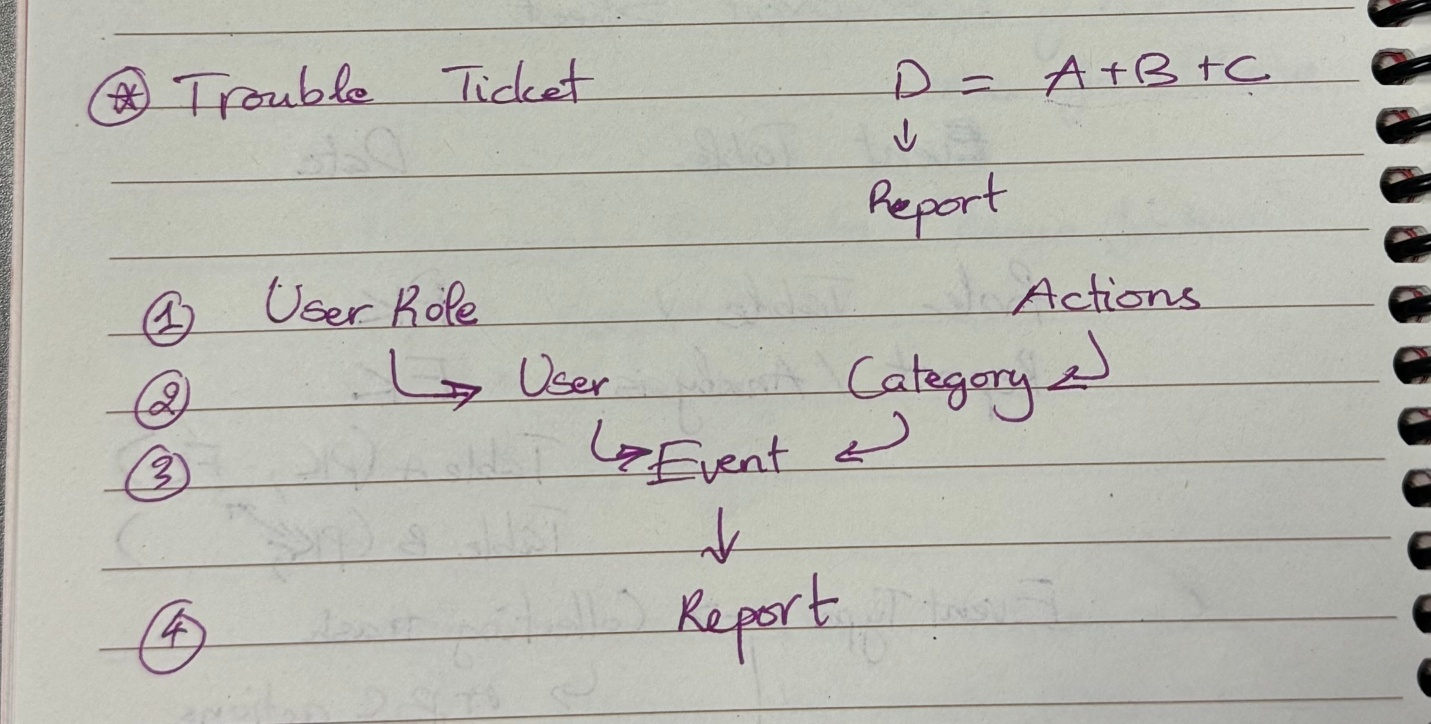 ⊛ Trouble Ticket D = A + B + C
↓
Report
① User Role Actions
② ↳ User Category ↲
③ ↳ Event ↲
↓
④ Report